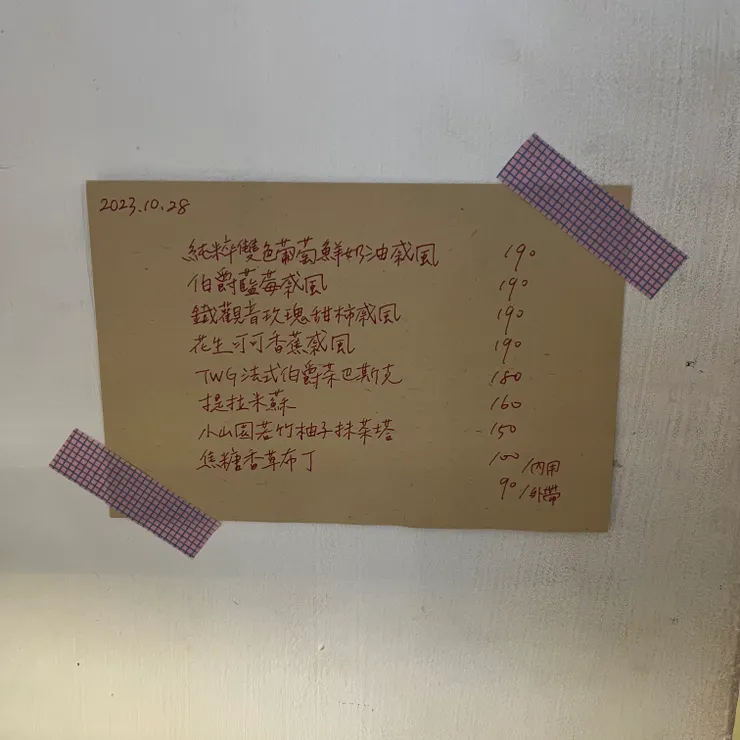 2023.10.28
純粹雙色葡萄鮮奶油戚風 190
伯爵藍莓戚風 190
鐵觀音玫瑰甜柿戚風 190
花生可可香蕉戚風 190
TWG法式伯爵茶巴斯克 180
提拉米蘇 160
小山園若竹柚子抹茶塔 150
焦糖香草布丁 100/內用
90/外帶